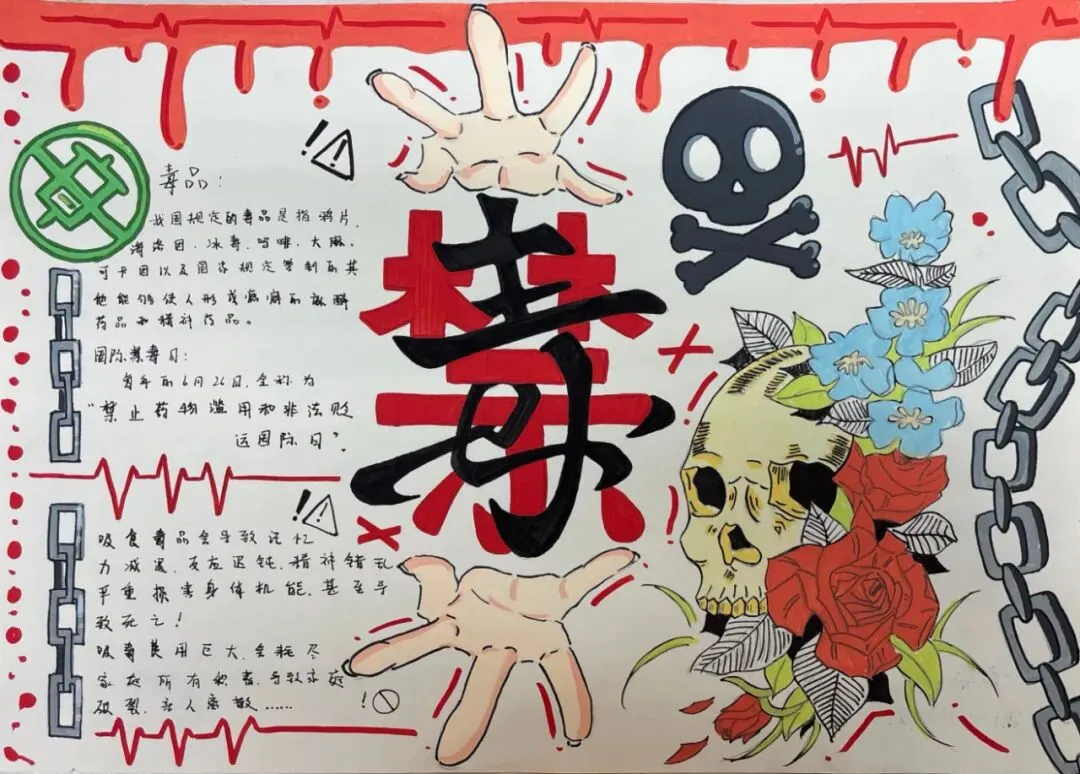 毒品:
我国规定的毒品是指鸦片,
海洛因、冰毒、吗啡、大麻、
可卡因以及国家规定管制的其
他能够使人形成瘾癖的麻醉
药品和精神药品。
国际禁毒日:
每年的6月26日,全称为
"禁止药物滥用和非法贩
运国际日"。
禁
毒
! !
! !
吸食毒品会导致记忆
力减退,反应迟钝,精神错乱
严重损害身体机能,甚至导
致死亡!
吸毒费用巨大,会耗尽
家庭所有积蓄,导致家庭
破裂,亲人离散……
!